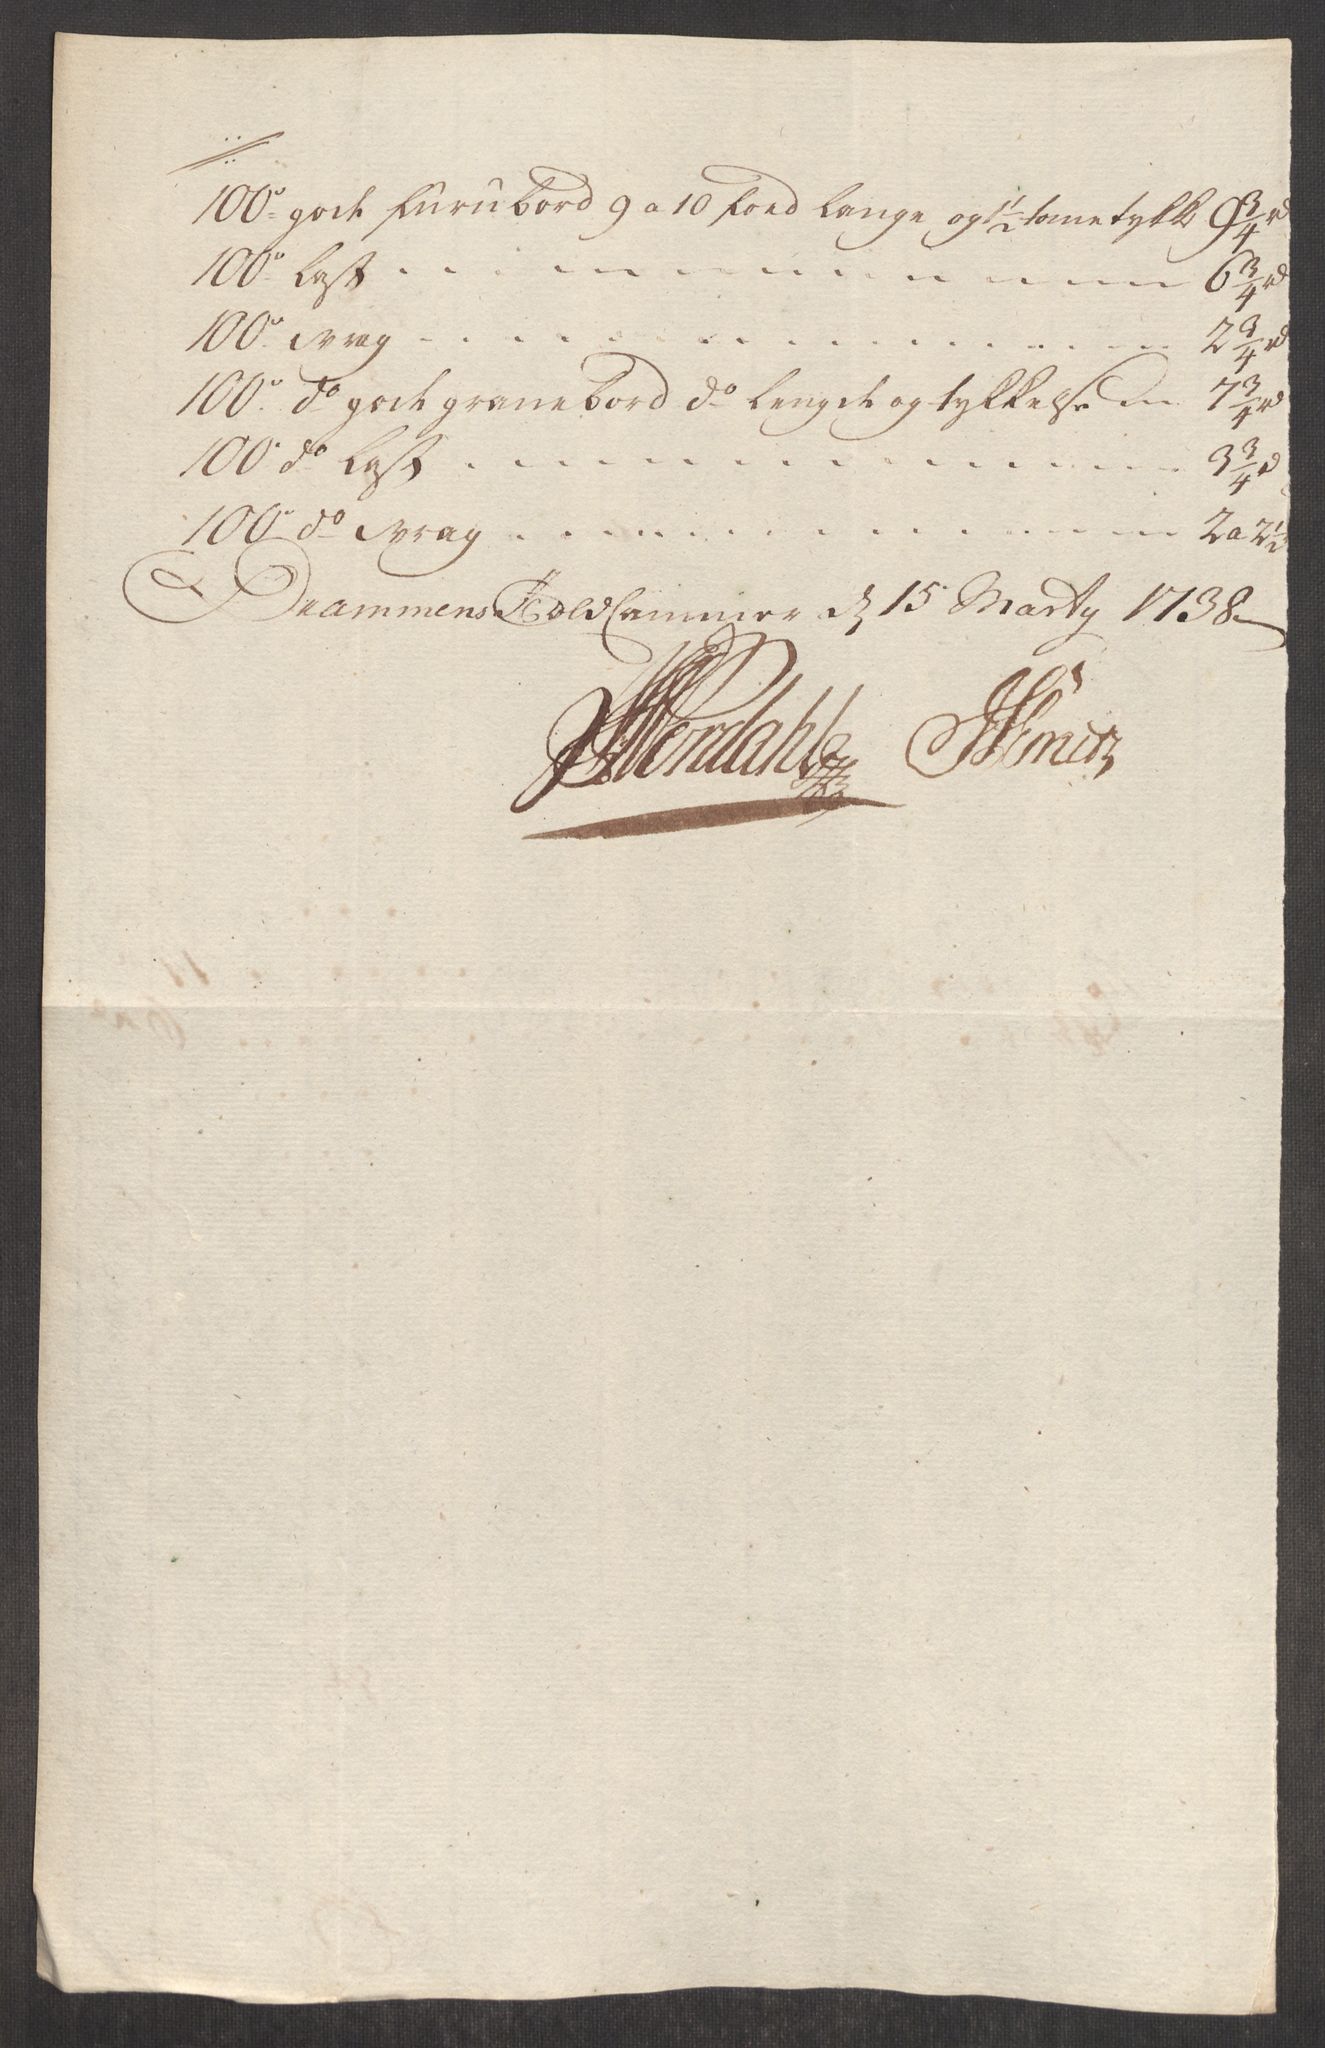 100de gode furubord 9 a 10 foed lange og 1½ tome tykk 9¾ rd
100de last 6¾ rd
100de wrag 2¾ rd
100de do gode granebord do lengde og tykkelse 7¾ rd
100de do last 3¾ rd
100de do wrag 2 a 2½
Drammens Told Cammer d 15 Marty 1738